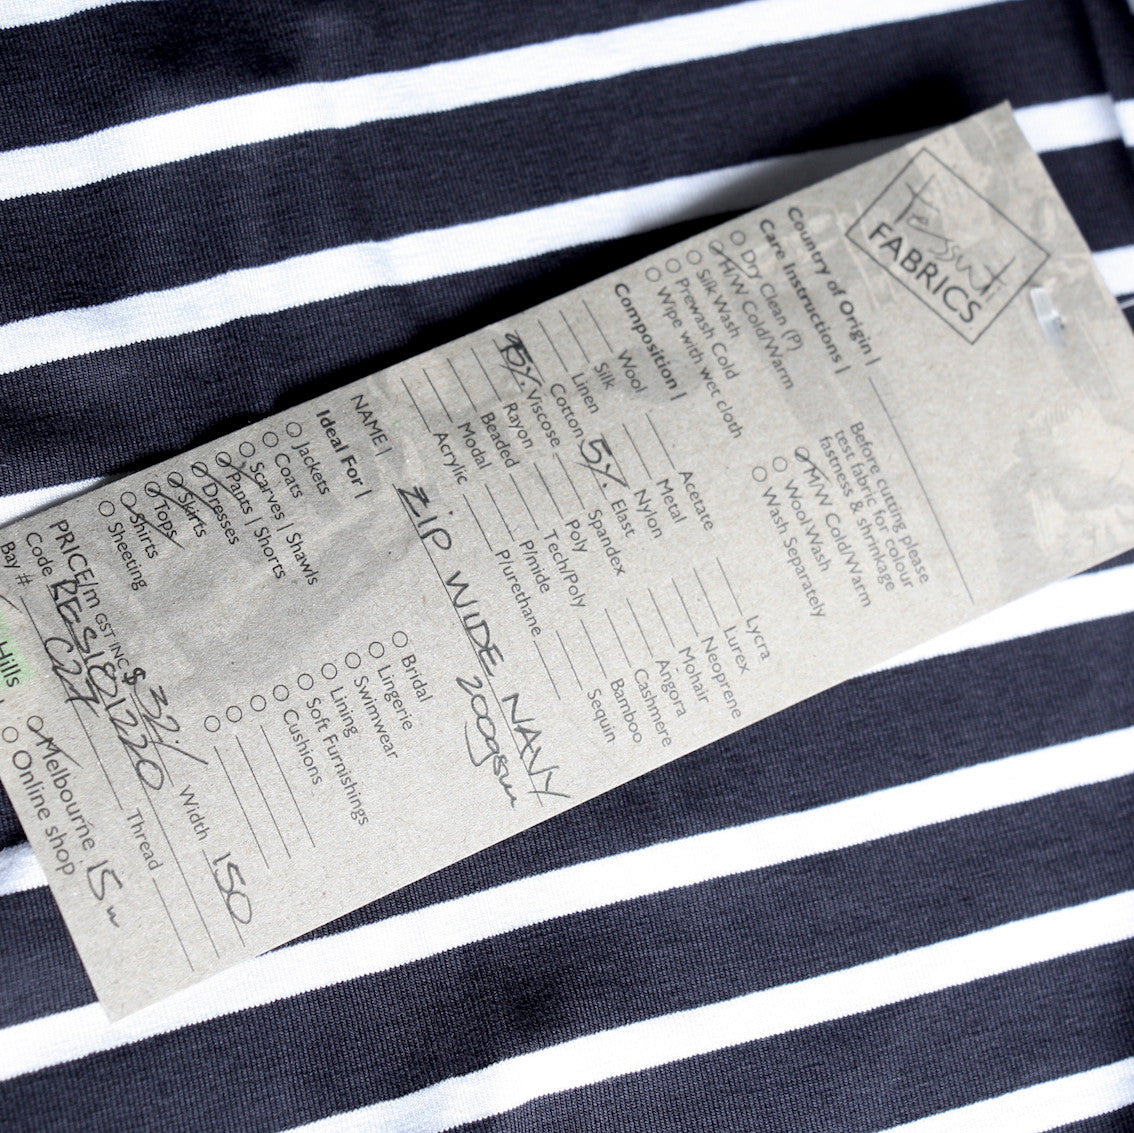 Tessuti
FABRICS
Country of Origin |
Care Instructions |
Dry Clean (P)
H/W Cold/Warm
Silk Wash
Prewash Cold
Wipe with wet cloth
Before cutting please
test fabric for colour
fastness & shrinkage
M/W Cold/Warm
Wool Wash
Wash Separately
Composition |
Wool
Silk
Linen
Cotton
95% Viscose
Rayon
Beaded
Modal
Acrylic
Acetate
Metal
Nylon
5% Elast
Spandex
Poly
Tech/Poly
P/mide
P/urethane
Lycra
Lurex
Neoprene
Mohair
Angora
Cashmere
Bamboo
Sequin
NAME | ZIP WIDE NAVY
200gsm
Ideal For |
Jackets
Coats
Scarves | Shawls
Pants | Shorts
Dresses
Skirts
Tops
Shirts
Sheeting
Bridal
Lingerie
Swimwear
Lining
Soft Furnishings
Cushions
PRICE/m GST INC $ 32./ Width 150
Code Thread
Bay # C27
Hills
Melbourne 15m
Online shop